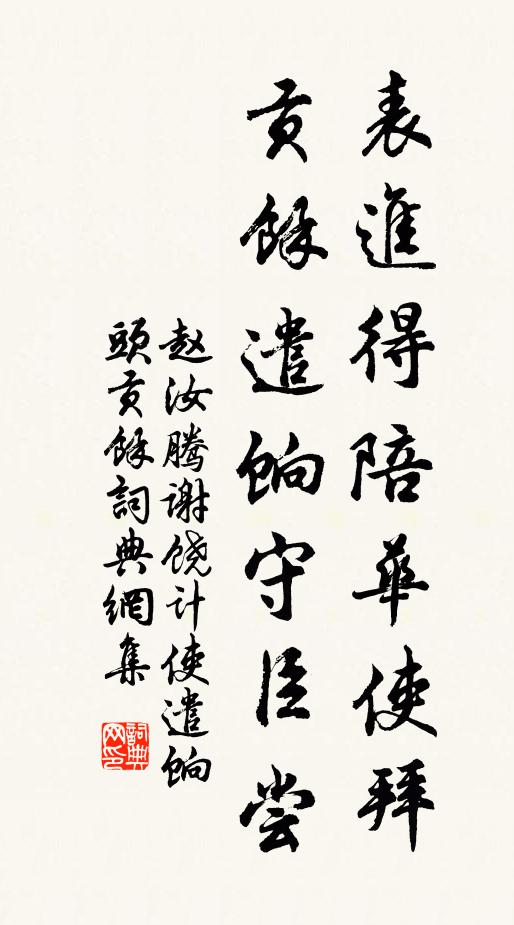 表進得陪華使拜
貢餘遣餉守臣尝
赵汝腾謝饶计使遣餉
頭貢餘詞典網集
詞典网印